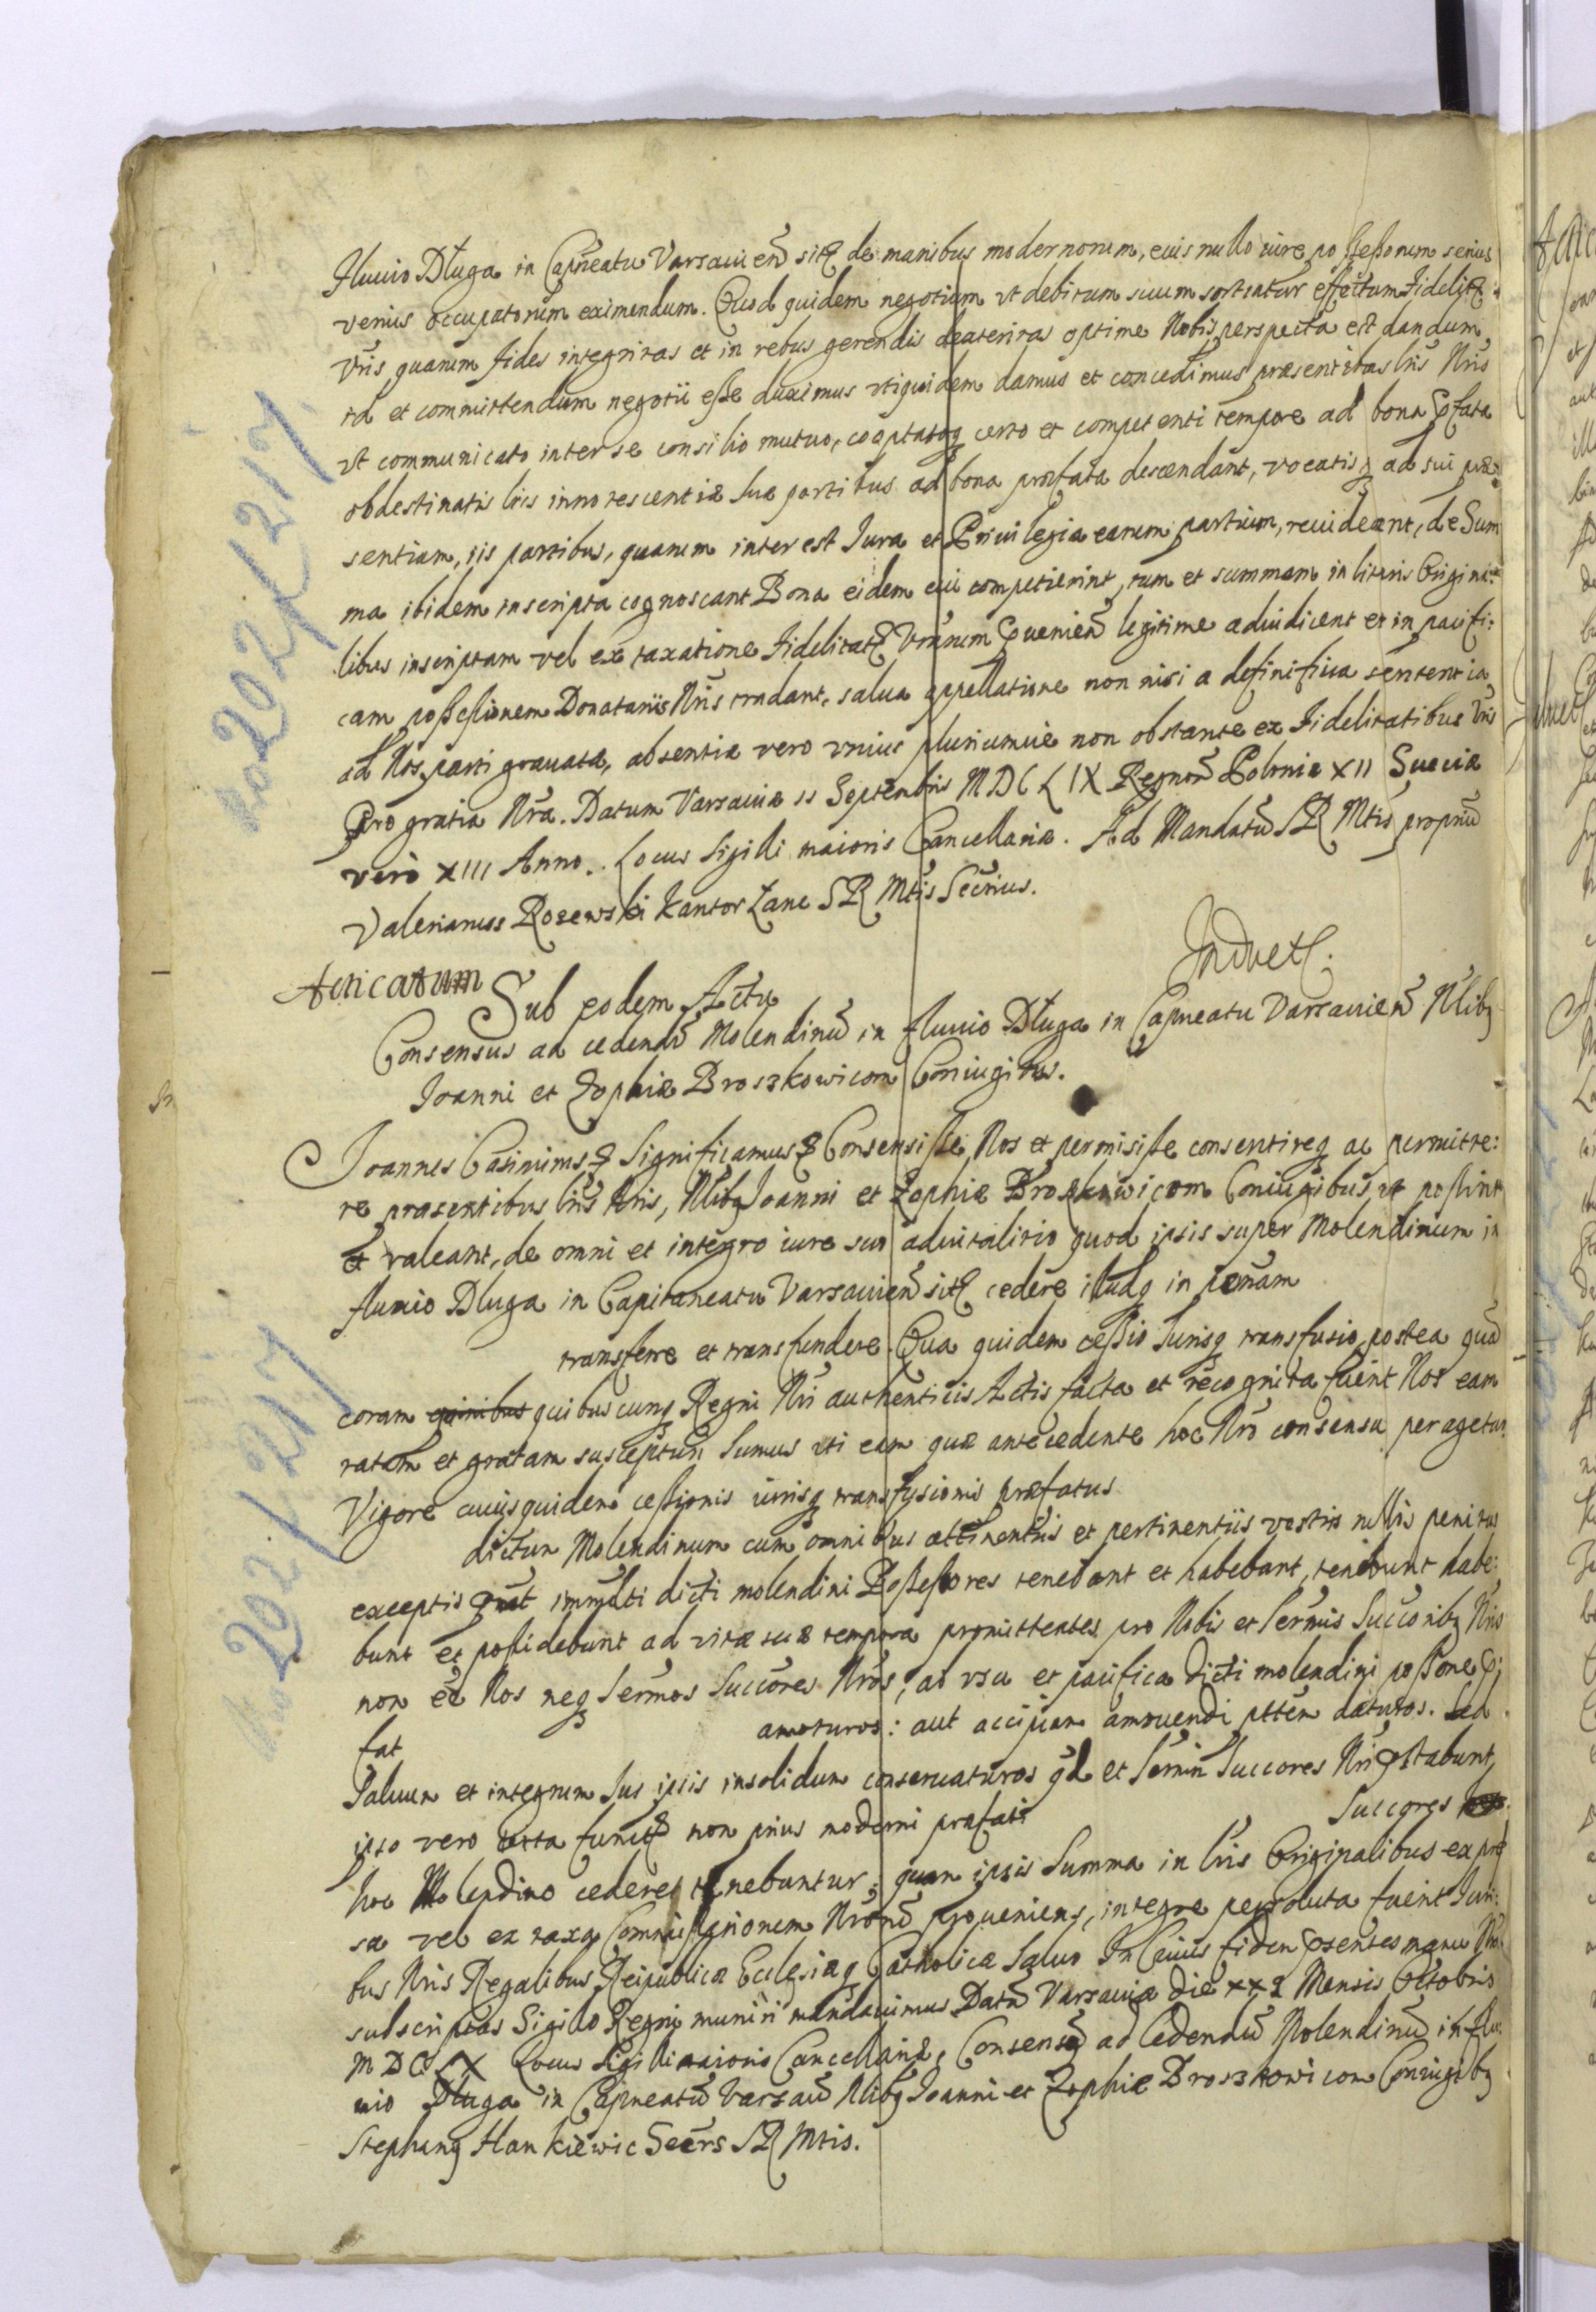 fluuio Długa in Capneatu Varsauien sit de manibus modernorum, eius nullo iure possessorum serius
verius occupatorum eximendum. Quod quidem negotium vt debitum suum sortiatur effectum Fidelit
Vris quarum fides integritas et in rebus gerendis dexteritas optime Nobis perspecta est dandum
id et committendum negotii esse duximus vti quidem damus et concedimus præsentibus lris Nris
vt communicato inter se consilio mutuo, cooptatoq certo et competenti tempore ad bona pfata
obdestinatis lris innotescentiæ suæ partibus ad bona præfata descendant, vocatisq ad sui præ:
sentiam, iis partibus, quarum interest Iura et Priuilegia earum partium, reuideant, de Sum
ma ibidem inscripta cognoscant Bona eidem cui competierint, tum et summam in literis Origina:
libus inscriptam vel ex taxatione Fidelitat Vrarum puenien legitime adiudicent et in pacifi:
cam possessionem Donatariis Nris tradant, salua appellatione non nisi a definitiua sententia
ad Nos parti grauatæ, absentia vero vnius pluriumue non obstante ex Fidelitatibus Vris
Pro gratia Nra. Datum Varsauiæ 11 Septembris MDCLIX Regnorū Poloniæ XII Sueciæ
verò XIII Anno. Locus Sigilli maioris Cancellariæ. Ad Mandatū SR Mtis propriū
Valerianus Rosewski Kantor Zane SR Mtis Secrius.
Induct
Acticatum
Sub eodem Actu
Consensus ad cedendū Molendinū in fluuio Długa in Capneatu Varsauien Nlibq
Ioanni et Zophiæ Broszkowicom Coniugibus.
Ioannes Casimirus Significamus Consensisse Nos et permisisse consentireq ac permitte:
re præsentibus lris Nris, Nlibq Ioanni et Zophiæ Broszkowicom Coniugibus, vt possint
et valeant, de omni et integro iure suo aduitalitio quod ipsis super Molendinum in
fluuio Dluga in Capitaneatu Varsauien sit cedere illudq in psonam
transferre et transfundere. Quæ quidem cessio Iurisq transfusio, postea quā
coram quibuscunq Regni Nri authenticis Actis facta et recognita fuerit Nos eam
ratam et gratam suscepturi sumus vti eam quæ antecedente hoc Nro consensu peragetur
Vigore cuius quidem cessionis iurisq transfusionis præfatus
dictum Molendinum cum omnibus attinentiis et pertinentiis vestris nullis penitus
exceptis put immediti dicti molendini Possessores tenebant et habebant, tenebunt habe:
bunt et possidebunt ad vitæ suæ tempora promittentes pro Nobis et Sermis Succoribq Nris
non ee Nos neq Sermos Succores Nros, ab vsu et pacifica dicti molendini possone pr
fat amoturos: aut alicuiam amouendi pttem daturos. Sed
Saluum et integrum Ius ipsis insolidum conseruaturos qd et Sermi Succores Nri pstabunt,
ipso vero facta funct non prius moderni præfati Succores
hoc Molendino cedere tenebuntur, quam ipsis Summa in lris Originalibus expres
sa vel ex taxa Commissariorum Nrorū proueniens, integre persoluta fuerit Iuri:
bus Nris Regalibus Reipublicæ Ecclesiæq Catholicæ saluo In Cuius fidem psentes manu Nra
subscriptas Sigillo Regni muniri mandauimus Datū Varsauiæ die XXI Mensis Octobris
MDCLX Locus Sigilli maioris Cancellariæ, Consensus ad Cedendū Molendinū in flu:
uio Długa in Capneatū Varsau Nlibq Ioanni et Zophiæ Broszkowicom Coniugibq
Stephanq Hankiewic Secrs SR Mtis.
No 202/1217
No 202/1217